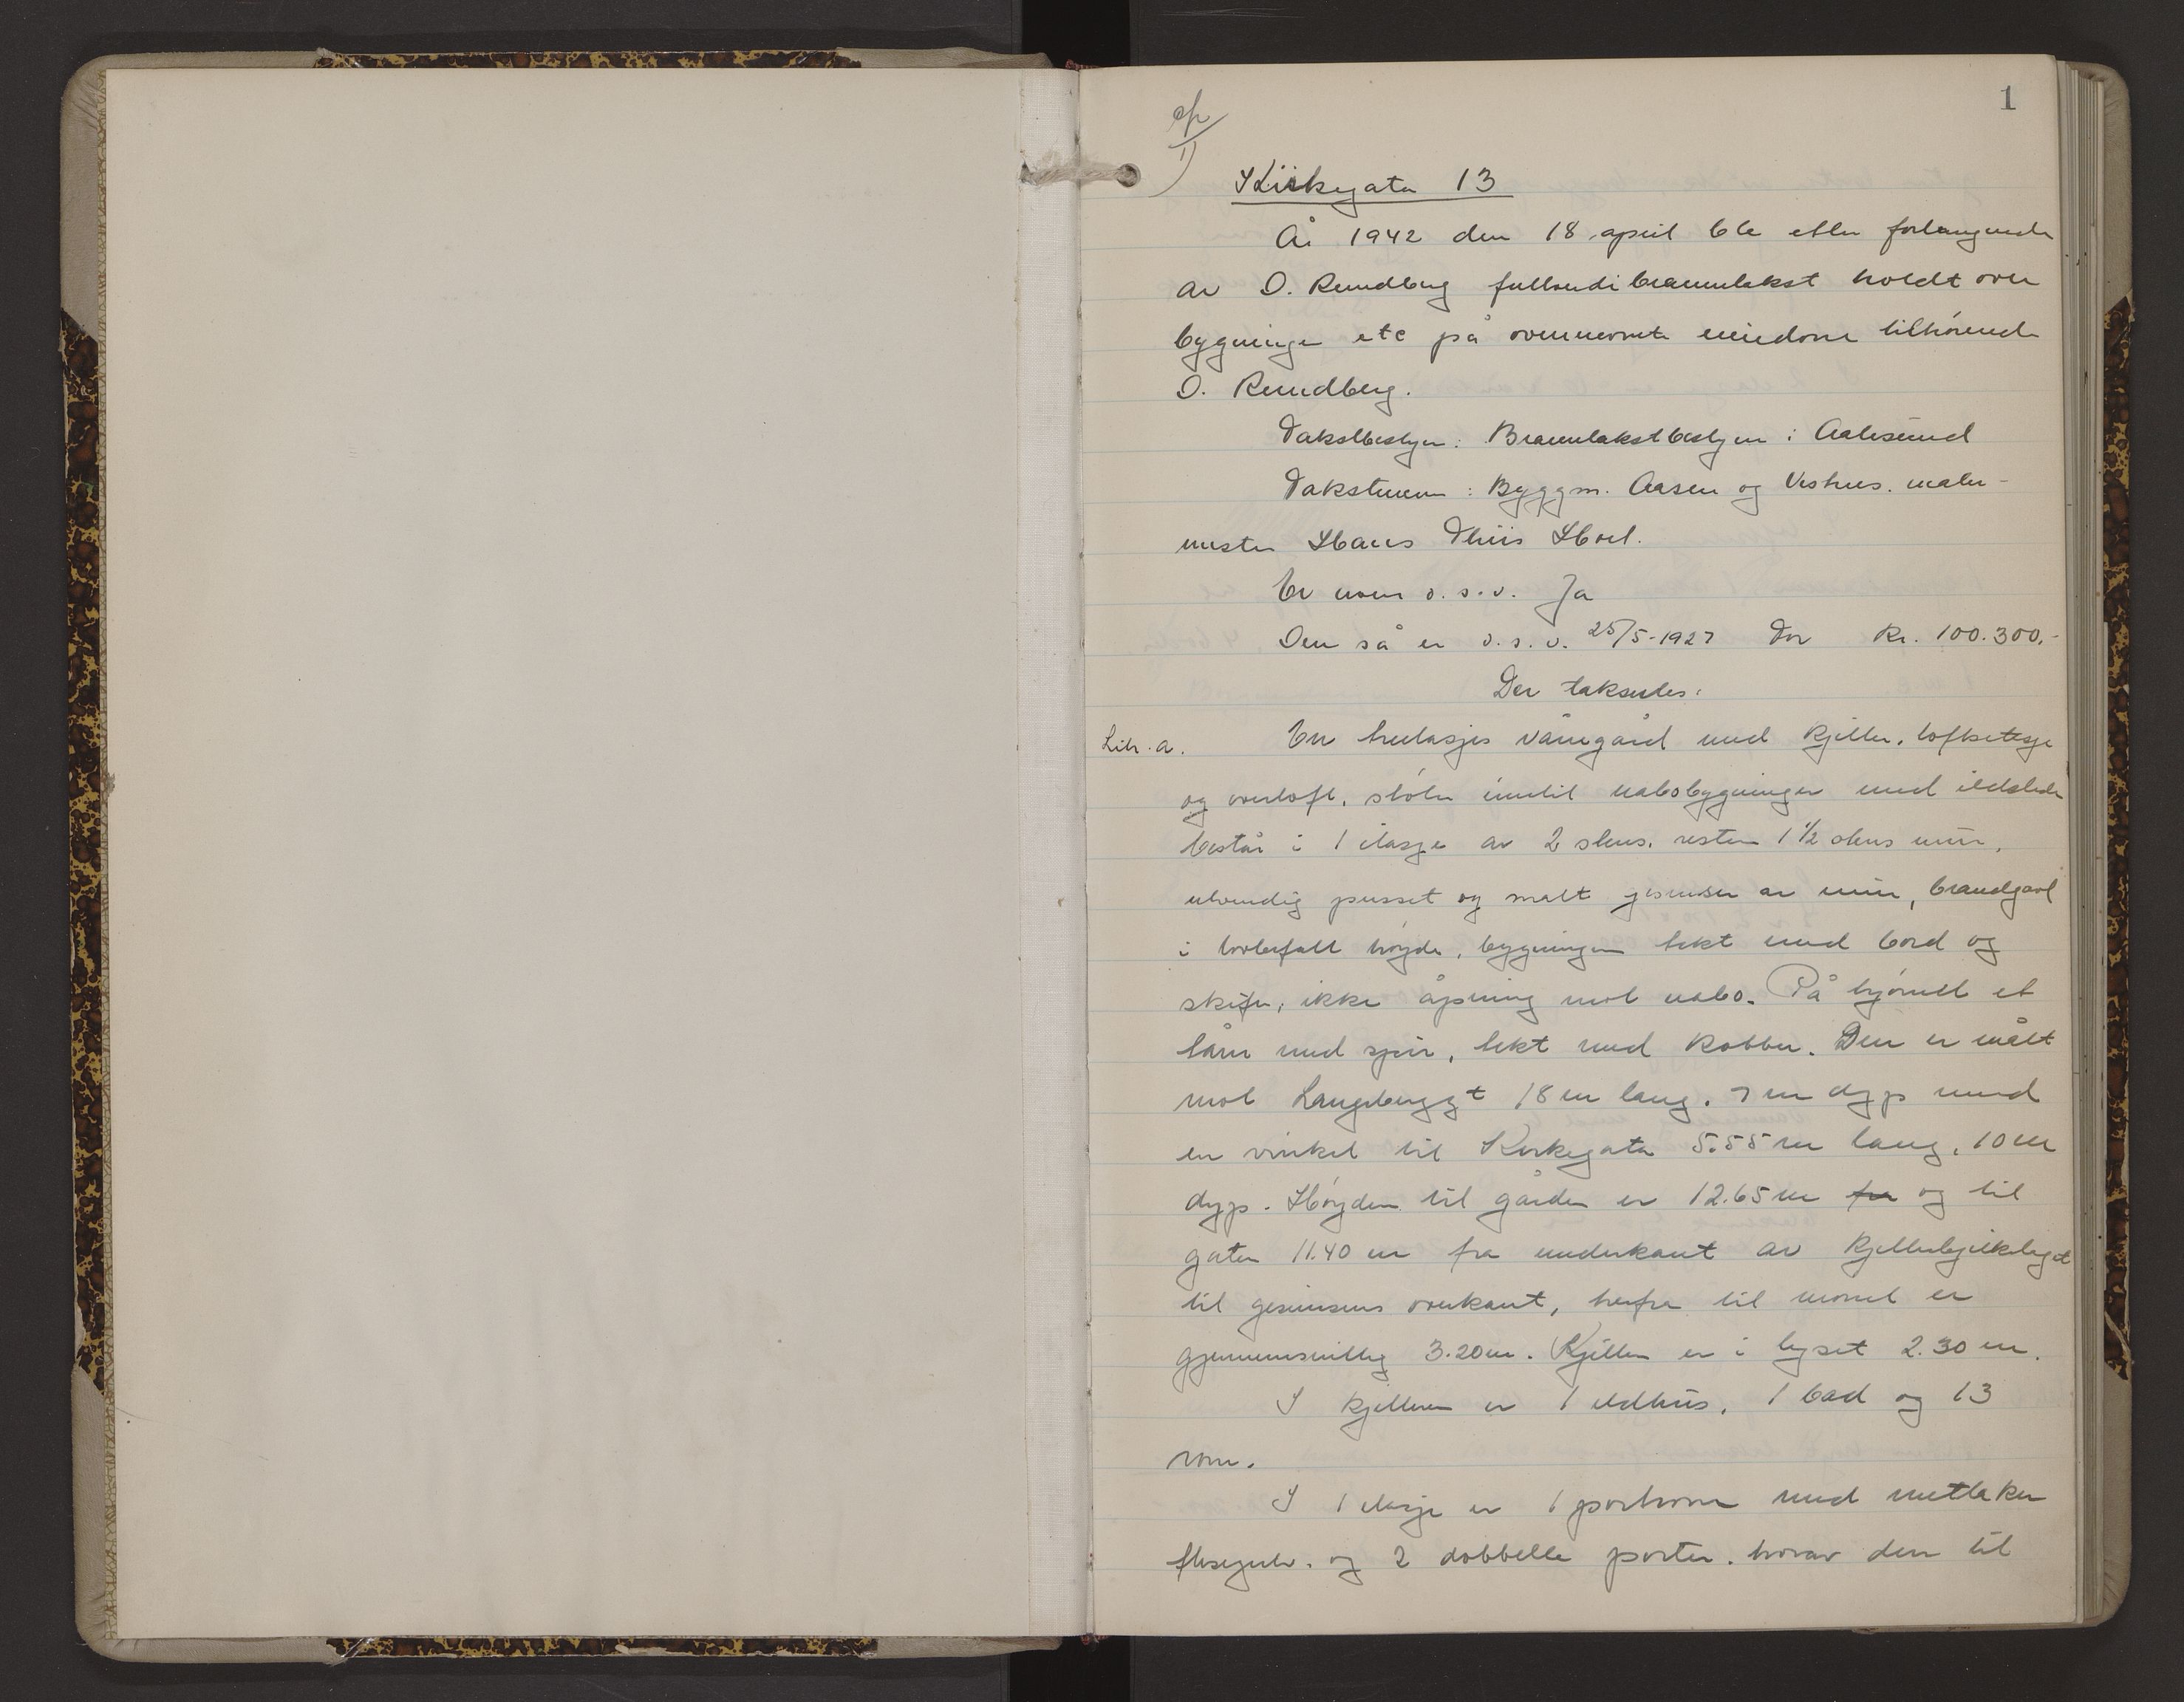 1
Kirkegata 13
År 1942 den 18 april ble etter forlangende
av O. Rundberg fullendi branntakst holdt over
bygninger etc på ovennevnte eiendom tilhørende
O. Rundberg.
Takstbestyrer: Branntakstbestyrer i Aalesund
Takstmenn: Byggm. Aasen og Vestnes. maler-
mester Hans Thiis Hoel.
Er noen o.s.v. Ja
Den så er o.s.v. 25/5-1927 for kr. 100.300.-
Der takseres:
Litr. a. En treetasjes våningård med kjeller, loftsetasje
og overloft, støter inntil nabobygninger med ildsteder
består i 1 etasje av 2 stens, resten 1 1/2 stens mur,
utvendig pusset og malt gesimser av mur, brandgavl
i lovbefalt høyde, bygningen tekt med bord og
skifer, ikke åpning mot nabo. På hjørnet et
tårn med spir, tekt med kobber. Den er målt
mot Langbryggt 18 m lang, 7 m dyp med
en vinkel til Kirkegata 5.55 m lang, 10 m
dyp. Høyden til gården er 12.65 m fra og til
gaten 11.40 m fra underkant av kjellerbjelkelaget
til gesimsens overkant, herfra til mønet er
gjennemsnittlig 3.20 m. Kjelleren er i lyset 2.30 m.
I kjelleren er 1 eldhus, 1 bad og 13
rom.
I 1 etasje er 1 portrom med metlaker
flisegulv. og 2 dobbelte porter. hvorav den til